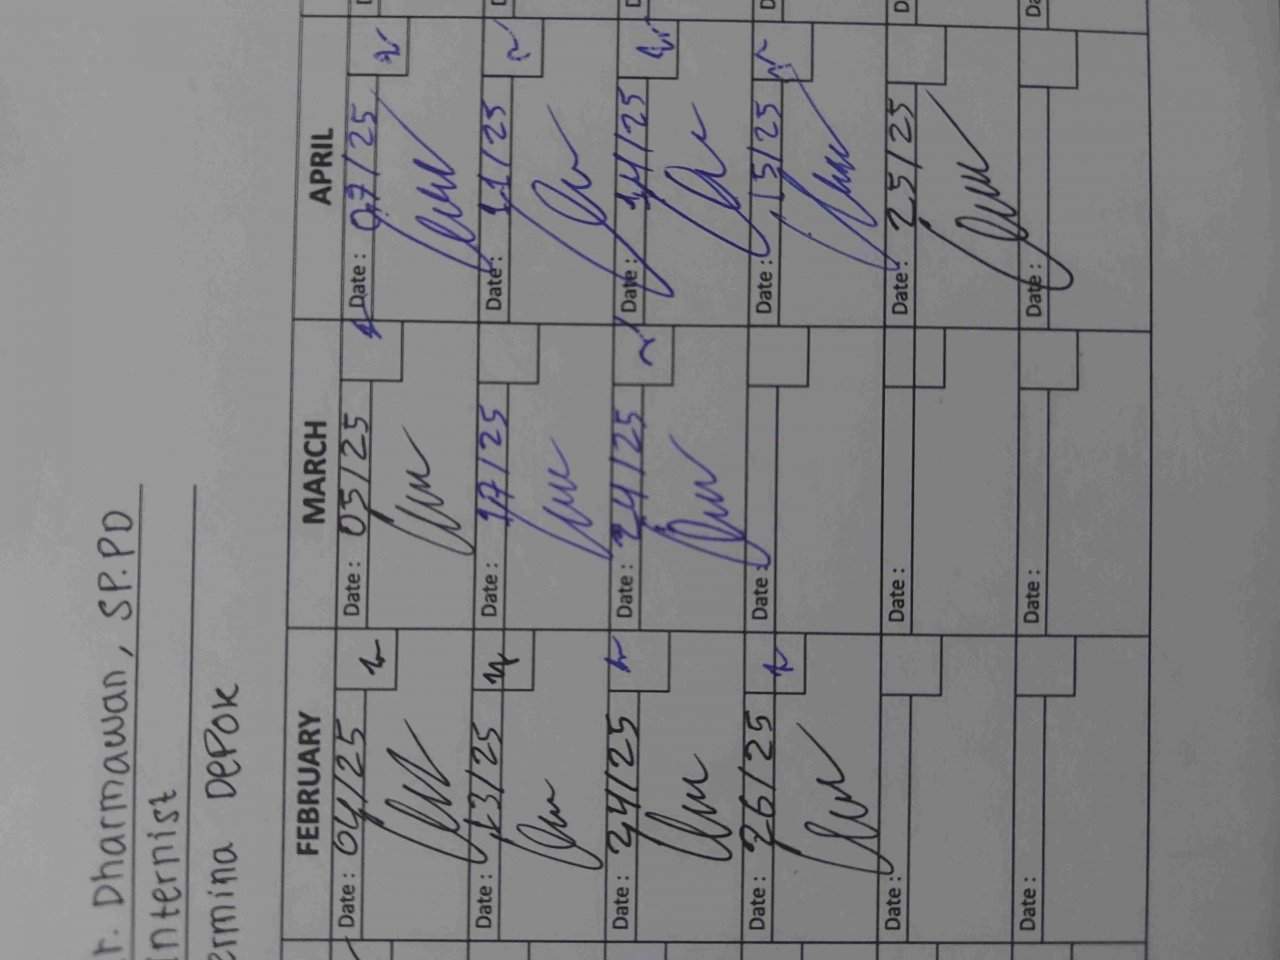 r. Dharmawan, SP.PD
internist
ermina DEPOK
FEBRUARY MARCH APRIL
Date : 04/25 Date : 05/25 Date : 07/25
Date : 13/25 Date : 17/25 Date : 11/25
Date : 24/25 Date : 24/25 Date : 14/25
Date : 26/25 Date : Date : 15/25
Date : Date : Date : 25/25
Date : Date : Date :